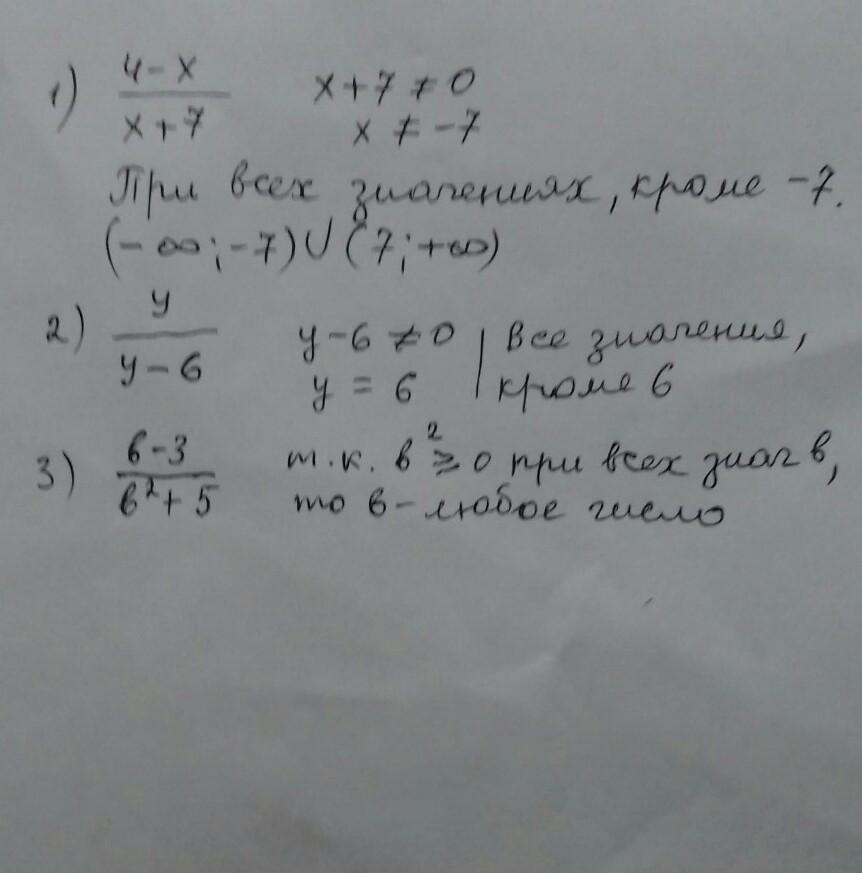 1) 4-x / x+7   x+7≠0
x ≠ -7
При всех значениях, кроме -7.
(-∞;-7)∪(7;+∞)
2) y / y-6   y-6≠0 | Все значения,
y = 6 | кроме 6
3) b-3 / b²+5   т.к. b² ≥ 0 при всех знач b,
то b-любое число